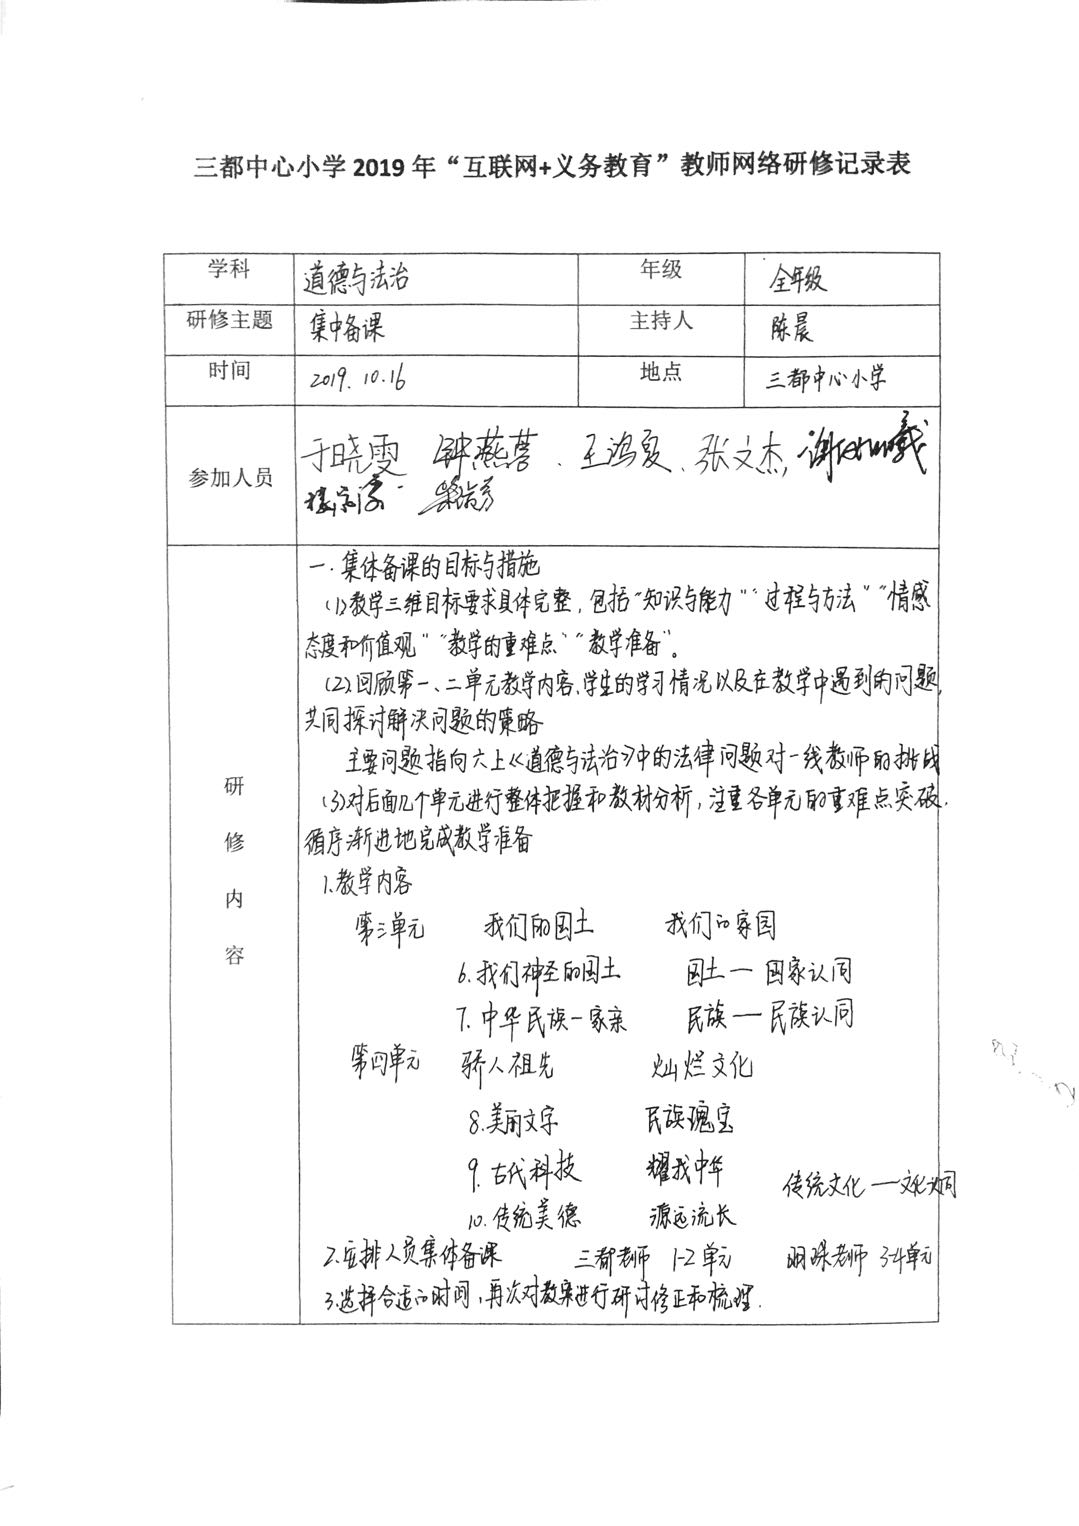 三都中心小学 2019 年“互联网+义务教育”教师网络研修记录表
学科 道德与法治 年级 全年级
研修主题 集中备课 主持人 陈晨
时间 2019.10.16 地点 三都中心小学
参加人员 于晓雯 钟燕蓉、王鸿复、张文杰，
研修内容
一.集体备课的目标与措施
(1)教学三维目标要求具体完整，包括“知识与能力”“过程与方法”“情感
态度和价值观”“教学的重难点”“教学准备”。
(2)回顾第一、二单元教学内容、学生的学习情况以及在教学中遇到的问题，
共同探讨解决问题的策略
主要问题指向六上《道德与法治》中的法律问题对一线教师的挑战
(3)对后面几个单元进行整体把握和教材分析，注重各单元的重难点突破.
循序渐进地完成教学准备
1.教学内容
第三单元 我们的国土 我们的家园
6.我们神圣的国土 国土一 国家认同
7.中华民族一家亲 民族一民族认同
第四单元 骄人祖先 灿烂文化
8.美丽文字 民族瑰宝
9.古代科技 耀我中华
传统文化一文化认同
10.传统美德 源远流长
2.安排人员集体备课 三都老师 1-2单元 明珠老师 3-4单元
3.选择合适的时间，再次对教案进行研讨修正和梳理.